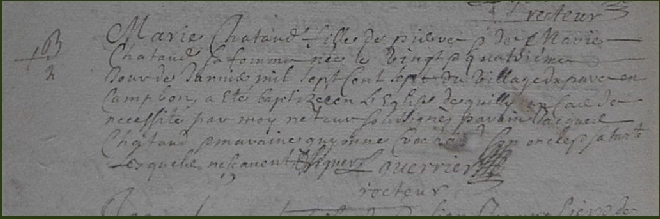 recteur
B
Marie Chataud fille de pierre & de Marie
Chataud sa femme née le vingt & quatrième
Jour de Janvier mil sept cent sept du village du pave en
Campbon, a eté baptizée en L'Eglise de quilly en Cas de
necessité par moy recteur soussigné parain Jacques
Chataud & maraine guyonne son oncle & sa tante
Lesquels ne signent
Louerrier
recteur